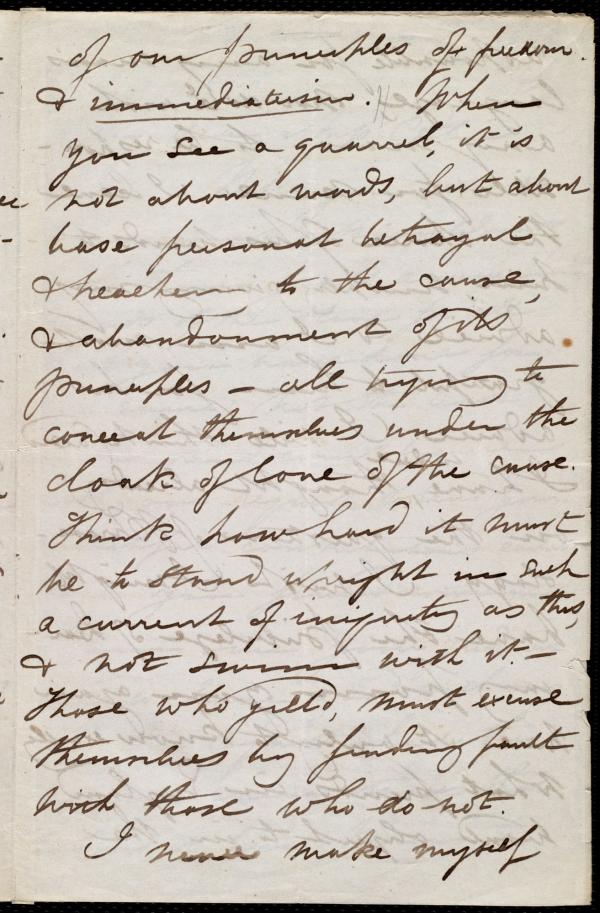 of our principles of freedom
& immediatism. // When
you see a quarrel, it is
not about words, but about
base personal betrayal
& treachery to the cause,
& abandonment of its
principles – all trying to
conceal themselves under the
cloak of love of the cause.
Think how hard it must
be to stand upright in such
a current of iniquity as this,
& not swim with it. –
Those who yield, must excuse
themselves by finding fault
with those who do not.
I never make myself